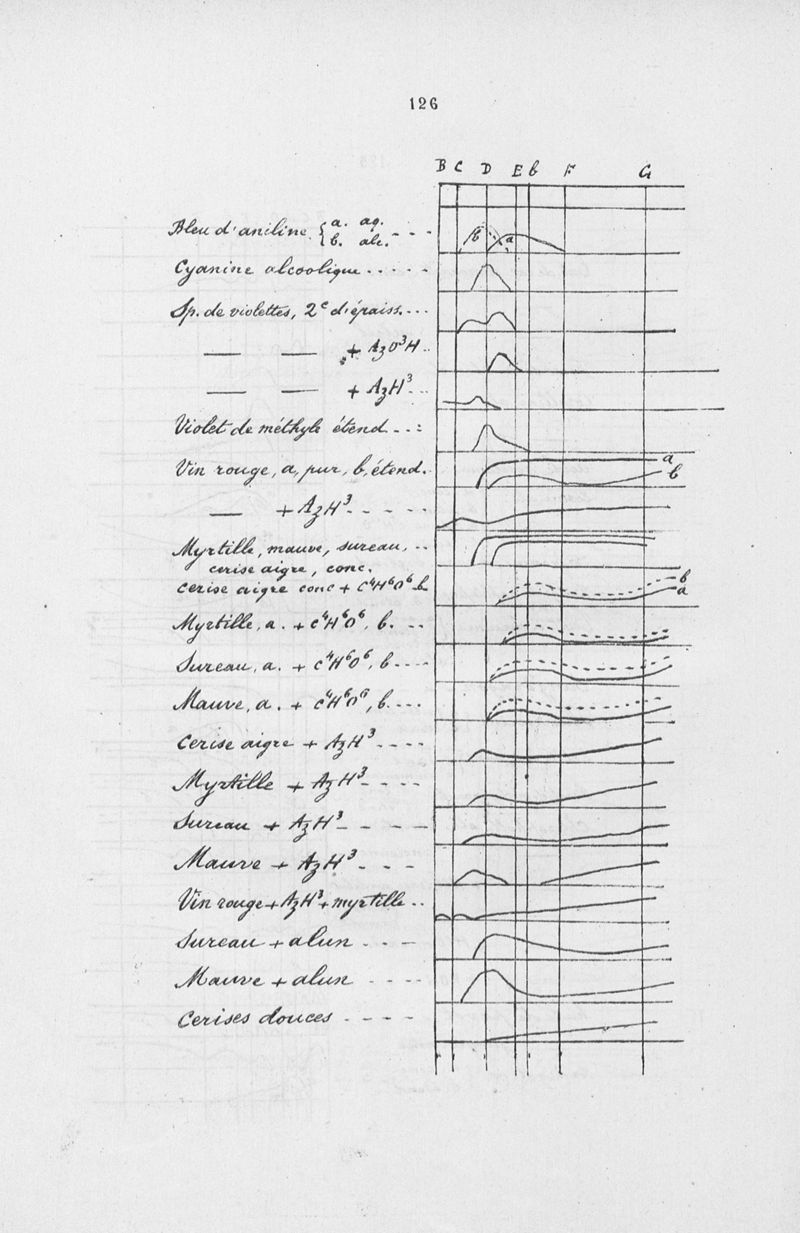 126
B C D E b F G
Bleu d'aniline { a. aq.
b. alc.
b a
Cyanine alcoolique
Sp. de violettes, 2e d'épaiss.
— — + AzO3H
— — + AzH3
Violet de méthyle étend.
Vin rouge, a, pur, b, étend. a
b
— + AzH3
Myrtille, mauve, sureau,
cerise aigre, conc.
Cerise aigre conc + C4H6O6 b b
a
Myrtille, a. + C4H6O6, b.
Sureau, a. + C4H6O6, b
Mauve, a. + C4H6O6, b.
Cerise aigre + AzH3
Myrtille + AzH3
Sureau + AzH3
Mauve + AzH3
Vin rouge + AzH3 + myrtille
Sureau + alun
Mauve + alun
Cerises douces